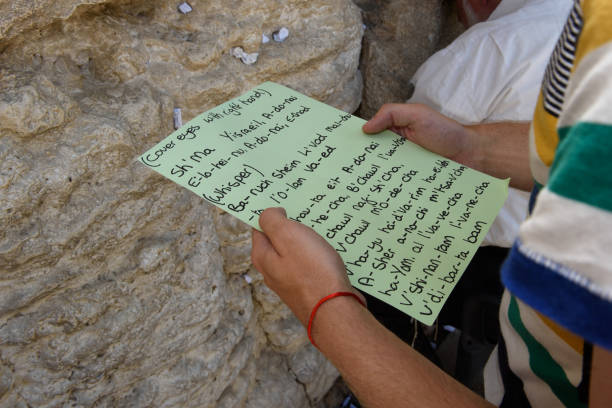 (Cover eyes with right hand)
Sh'ma Yisraeil, A-do-nai
E-lo-hei-nu, A-do-nai, Echad
(Whisper)
Ba-ruch Sheim k'vod
l'o-lam va-ed
ta eit A-do-nai
he-cha, B'chawl
V'chawl naf sh'cha,
V'chawl mo-de-cha
V'ha-yu ha-d'va-rim ha-ei-leh
A-sher a-no-chi m'tsav'cha
ha-Yom al l'va-ve-cha
V'shi-nan-tam l'va-ne-cha
V'di-bar-ta bam